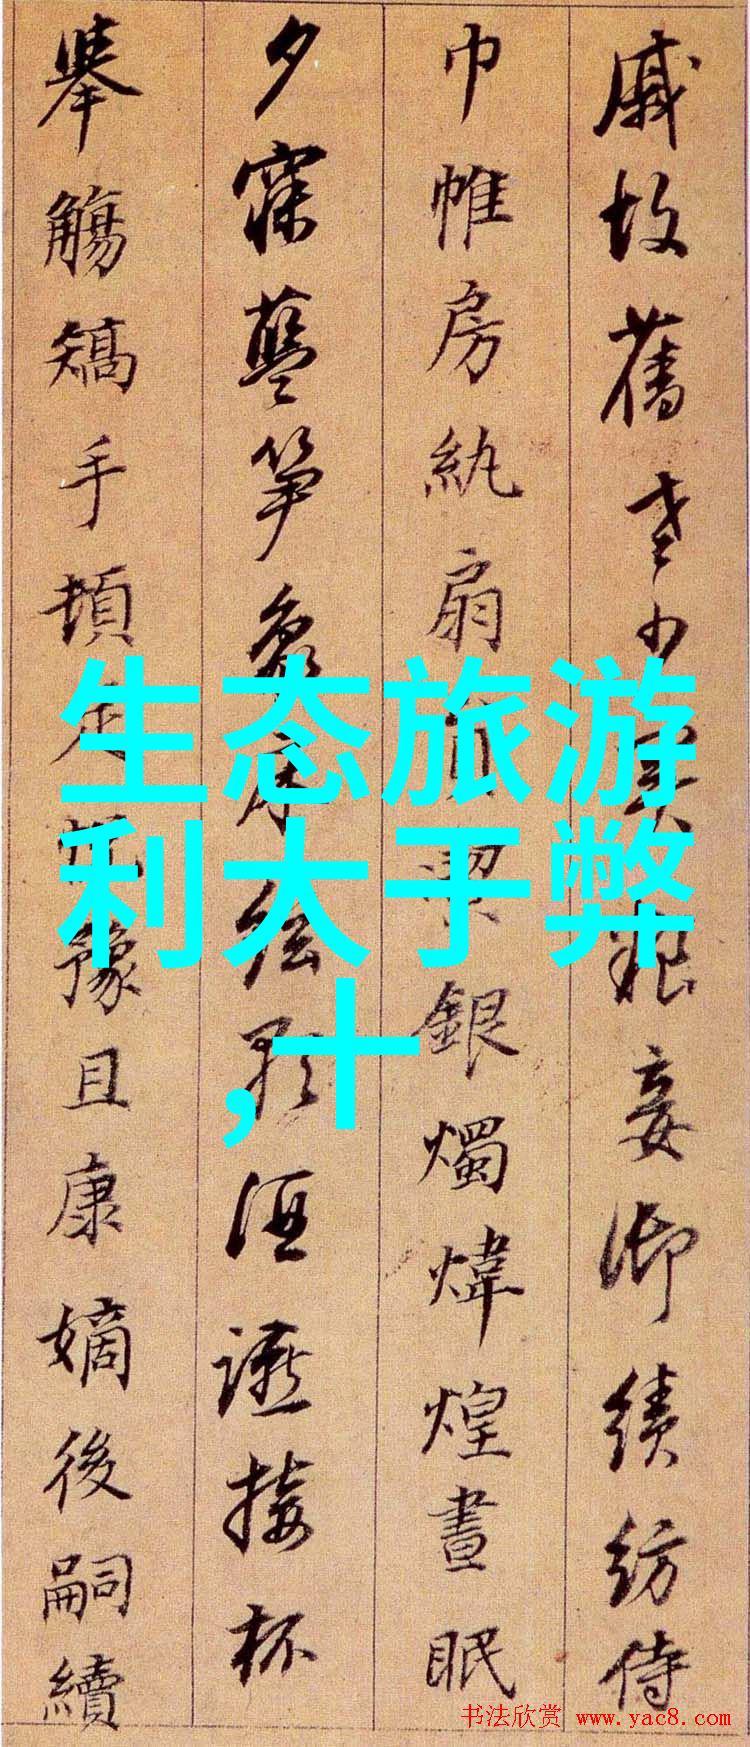 戚故舊老少異粮妾御績紡侍
巾帷房紈扇銀燭煒煌晝眠
夕寐藍笋象床絃歌酒讌接杯
舉觴矯手頓足悅豫且康嫡後嗣續
生态旅游
利大于弊
,十
书法欣赏 www.yac8.com